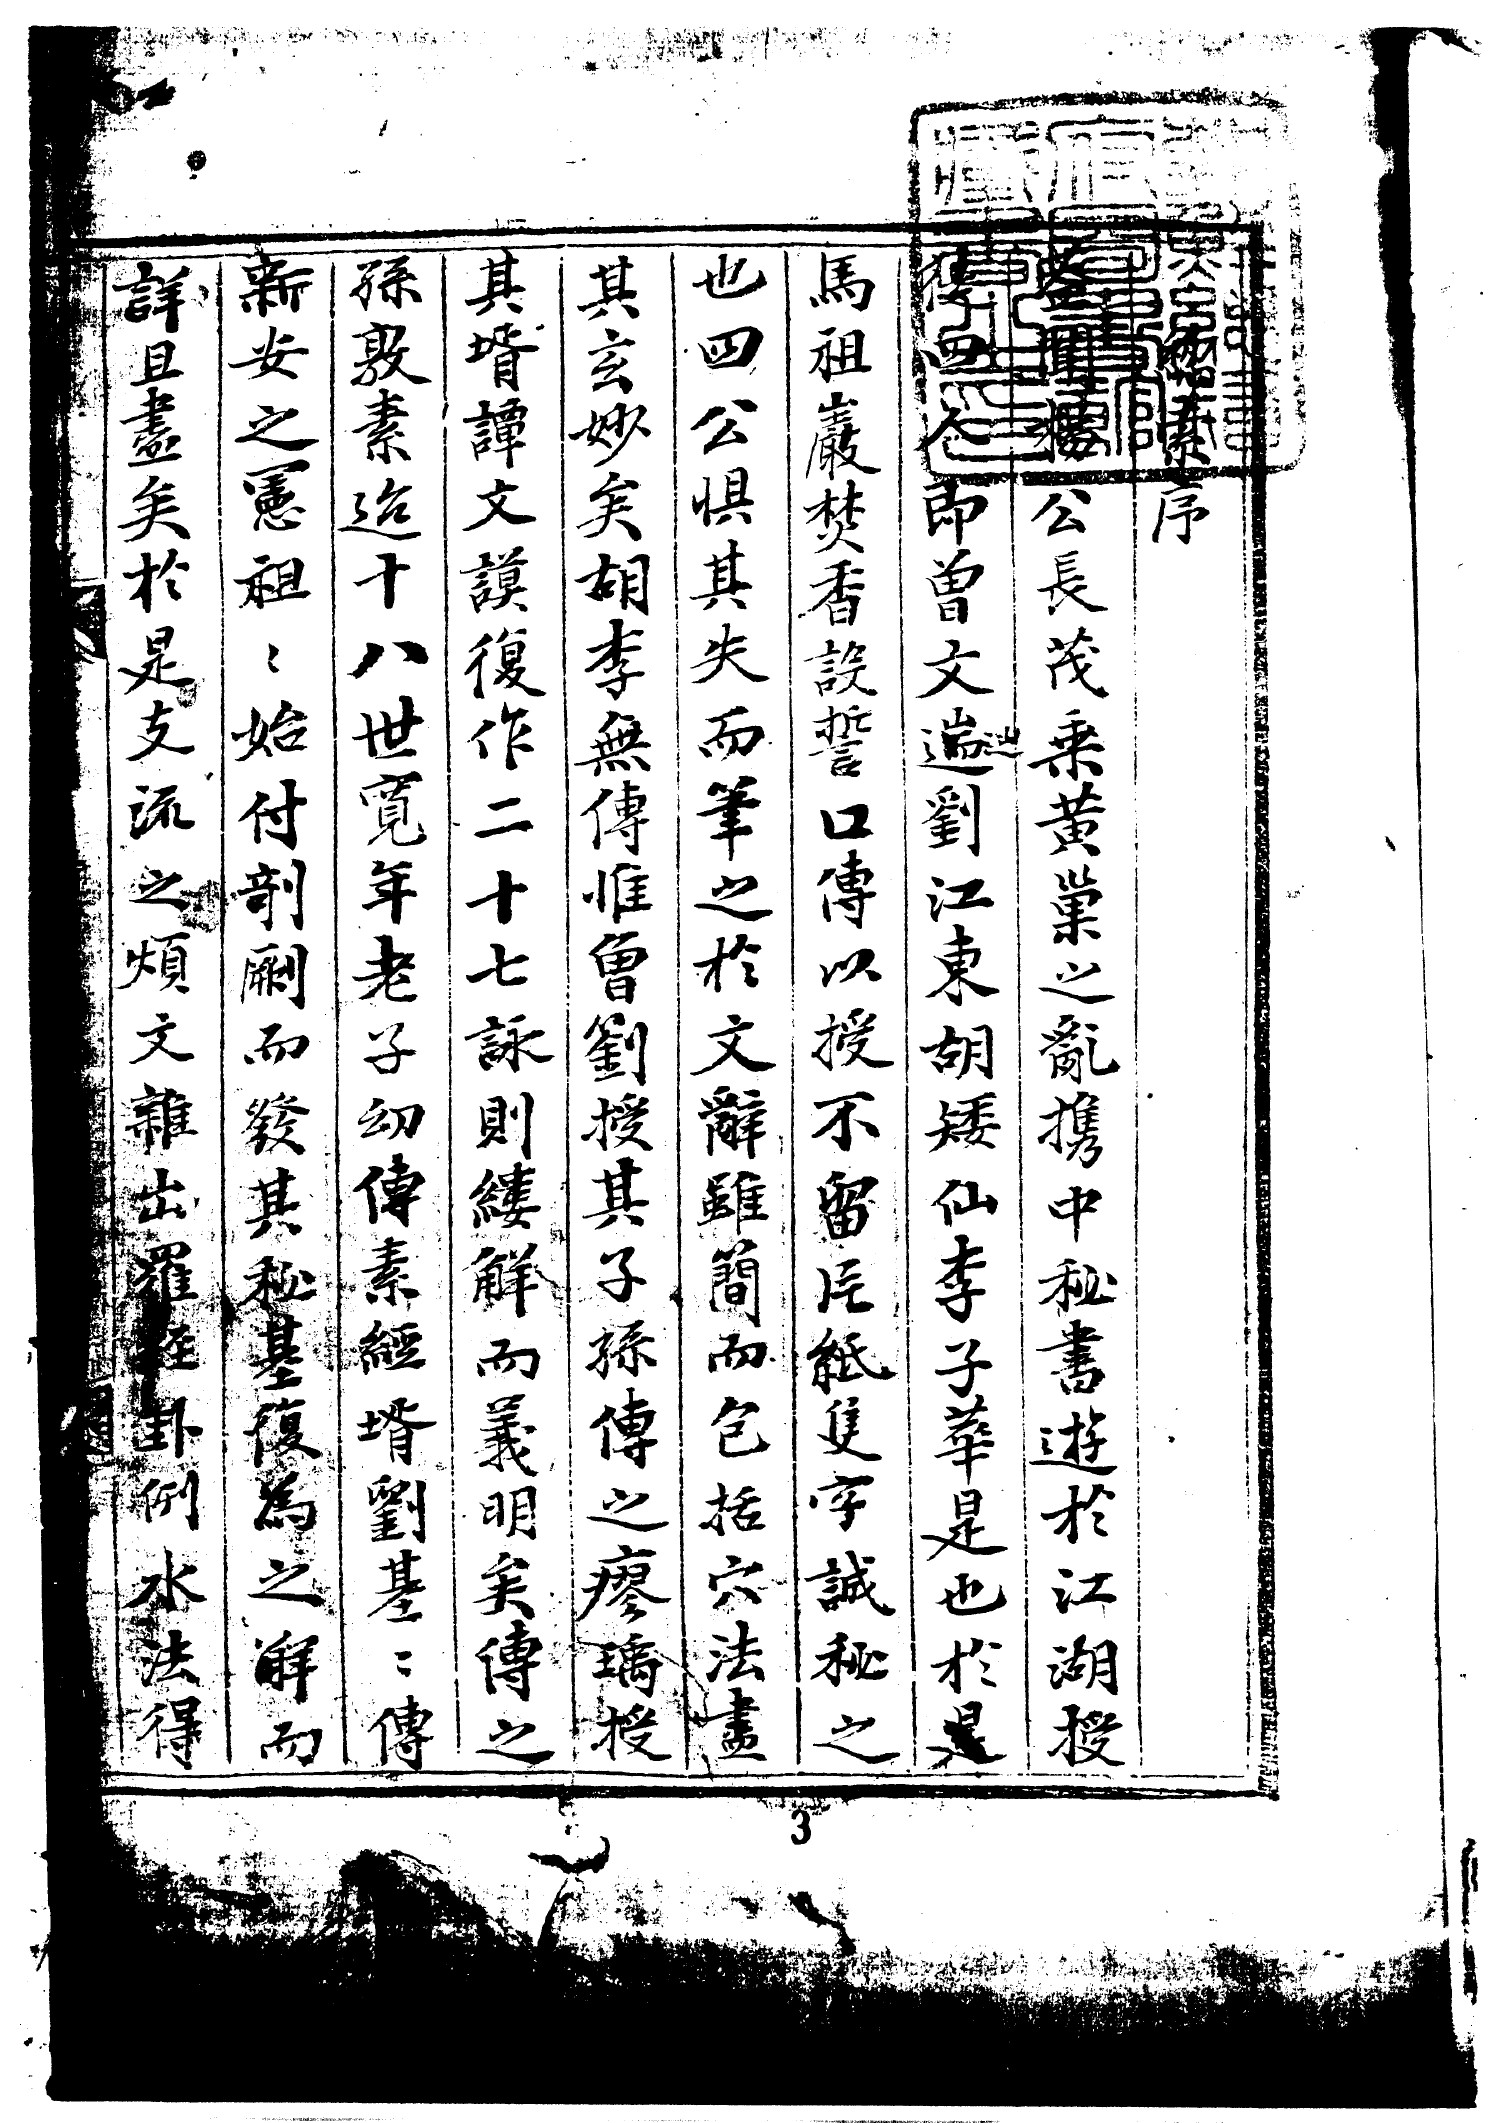 素序
公長茂乗黄巢之亂携中秘書遊於江湖授
傳四人即曾文辿劉江東胡矮仙李子華是也於是
馬祖巖焚香設誓口傳以授不留片紙隻字誠秘之
也四公惧其失而筆之於文辭雖簡而包括穴法盡
其玄妙矣胡李無傳惟曾劉授其子孫傳之廖瑀授
其壻譚文謨復作二十七詠則縷觧而義明矣傳之
孫敦素迨十八世寛年老子幼傳素經壻劉基〻傳
新安之憲祖〻始付剞劂而發其秘基復為之觧而
詳且盡矣於是支流之煩文雜出羅經卦例水法得
3